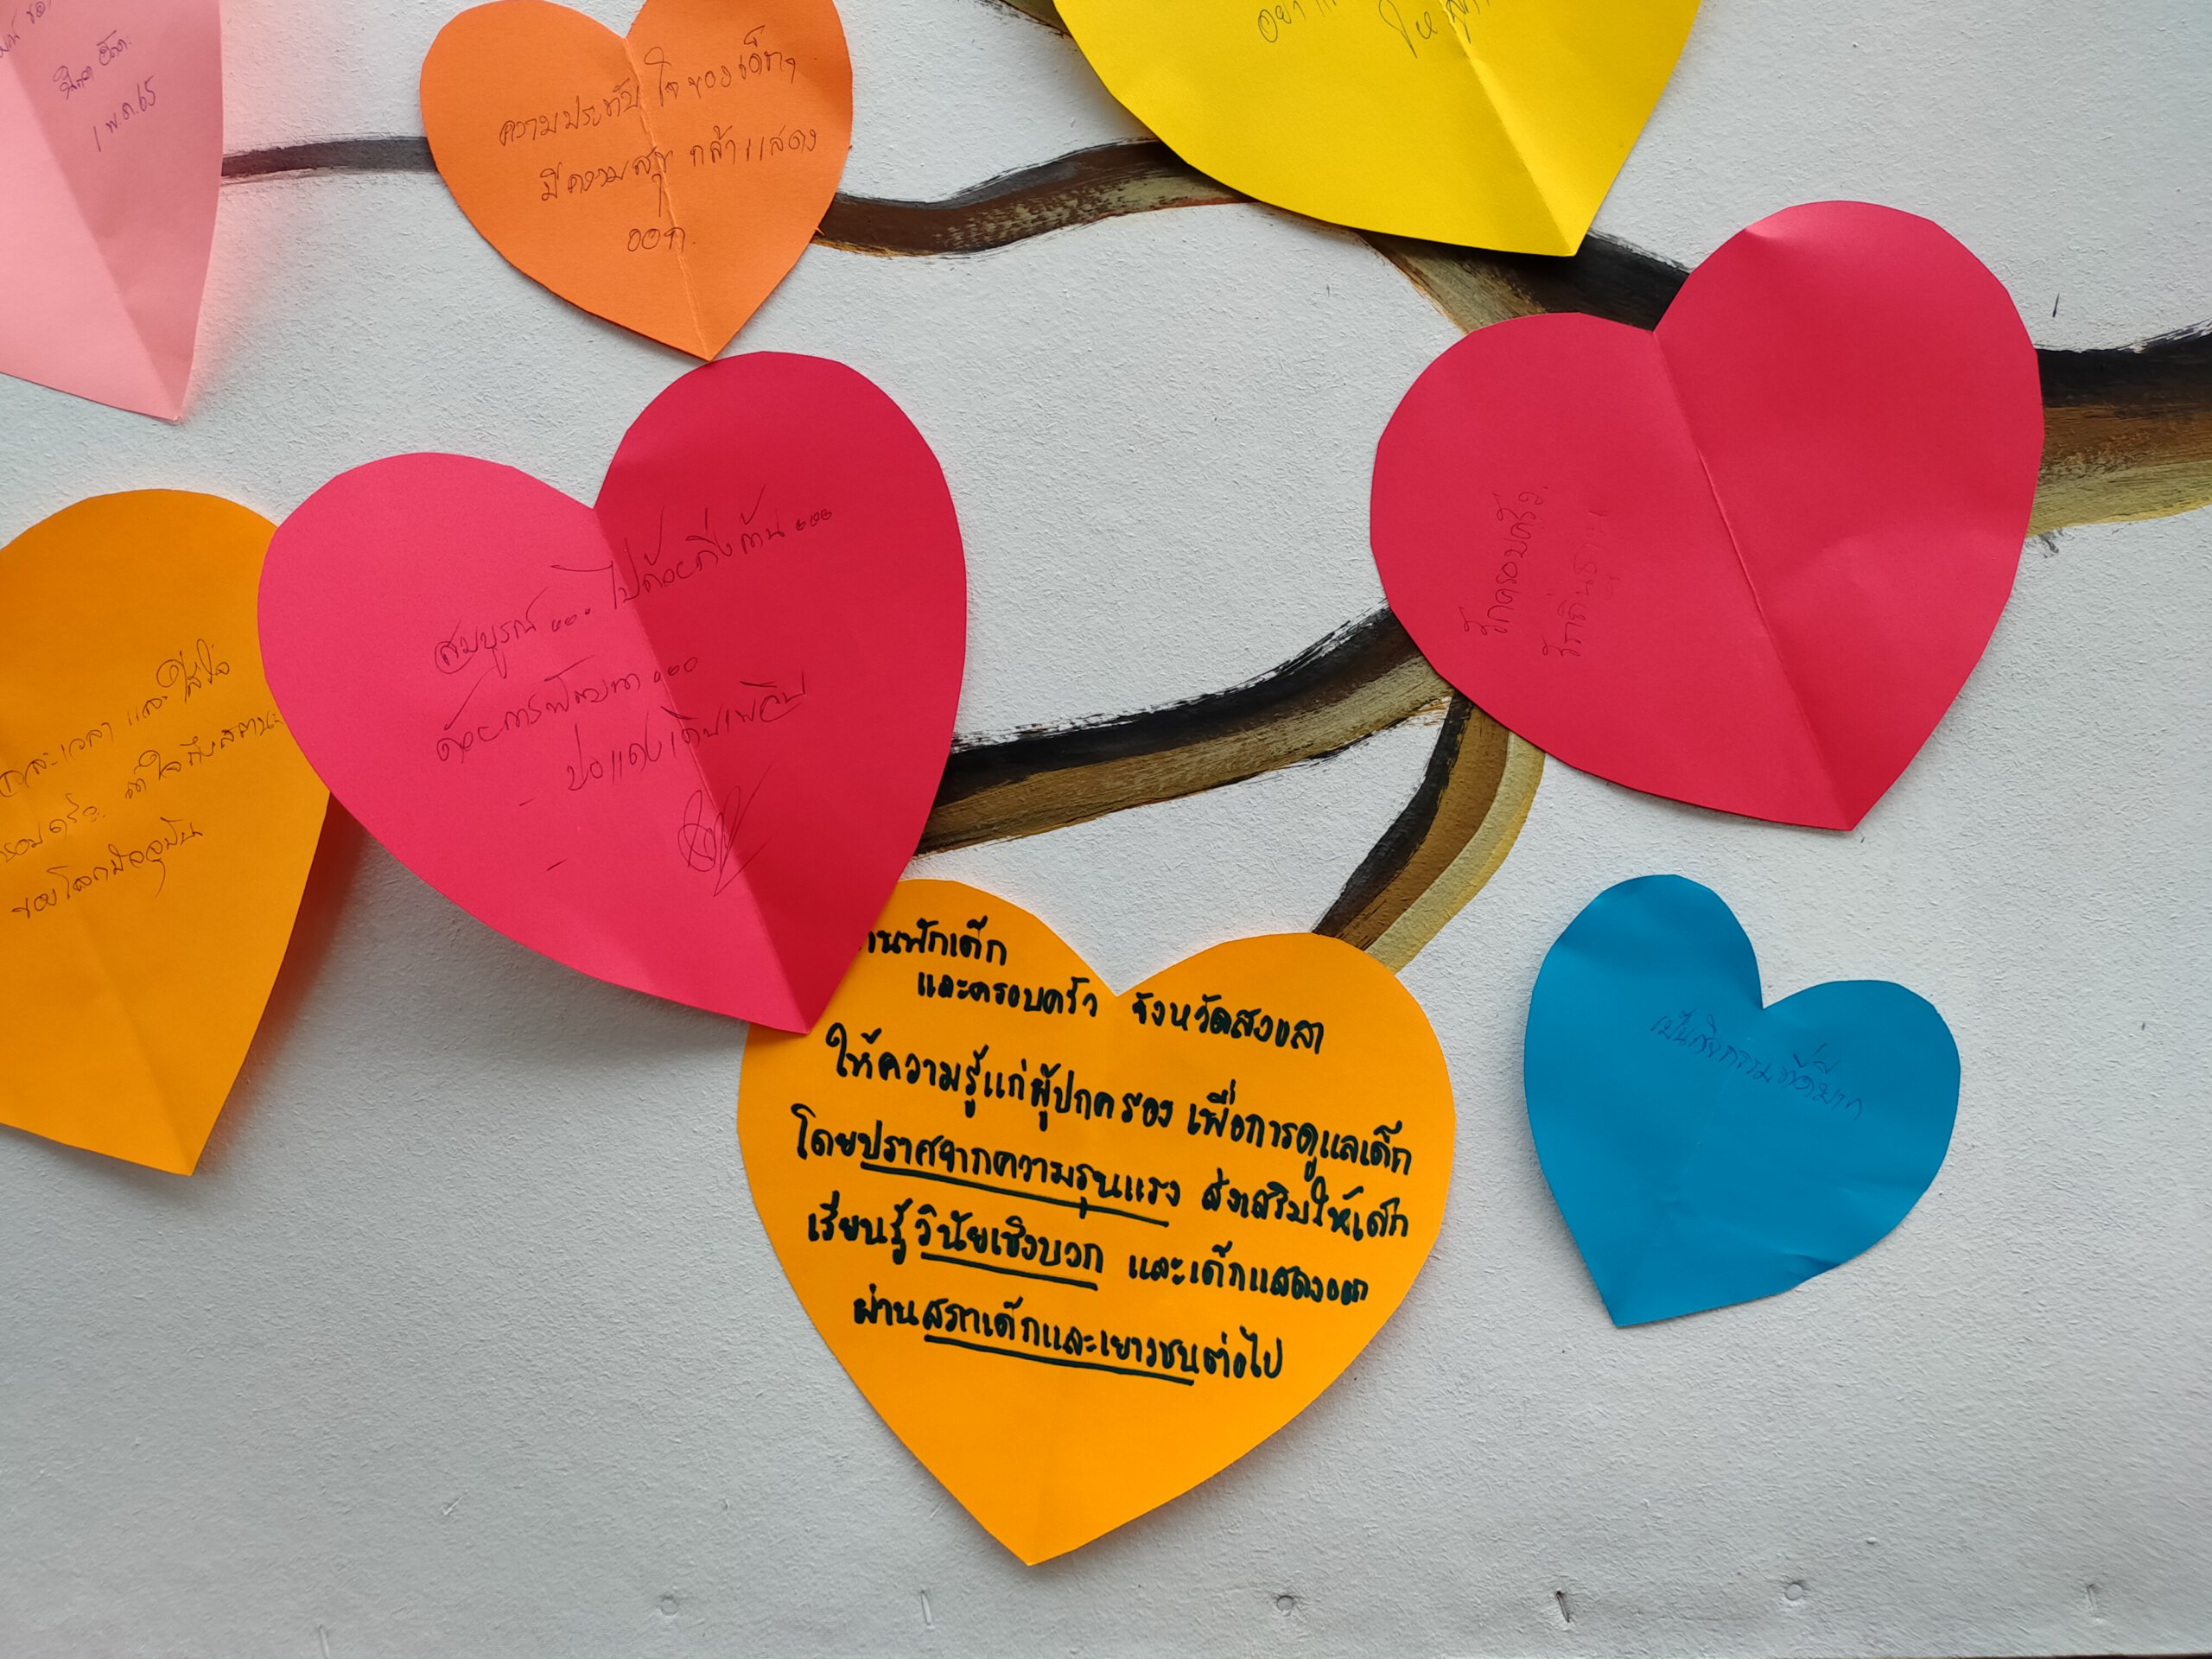 1 พ.ค.65
ความประทับใจของเด็กๆ
มีความสุข กล้าแสดง
ออก.
สมบูรณ์ ... ไปด้วยกิ่งก้าน ...
ด้วยการพัฒนา ...
รักครอบครัว.
รักถิ่นฐาน
และเวลา และใส่ใจ
ของโลกปัจจุบัน
านพักเด็ก
และครอบครัว จังหวัดสงขลา
ให้ความรู้แก่ผู้ปกครอง เพื่อการดูแลเด็ก
โดยปราศจากความรุนแรง ส่งเสริมให้เด็ก
เรียนรู้วินัยเชิงบวก และเด็กแสดงออก
ผ่านสภาเด็กและเยาวชนต่อไป
เป็นกิจกรรมที่ดีมาก